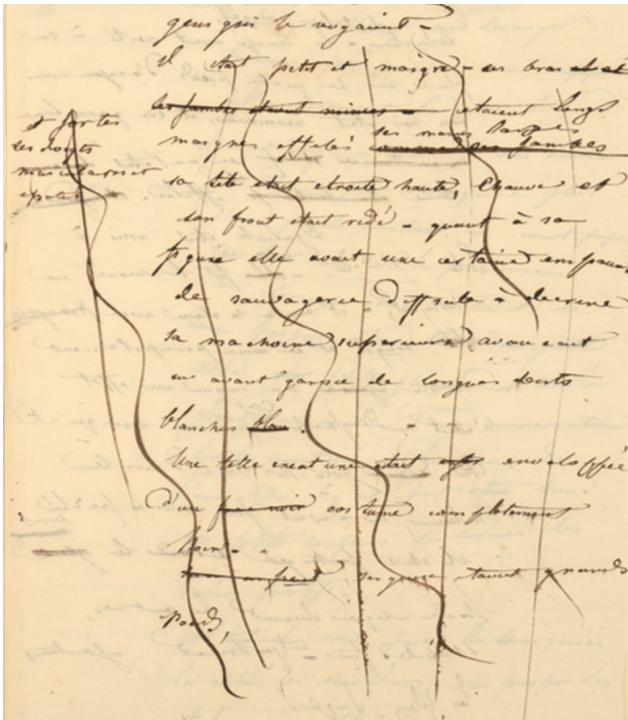 gens qui le voyaient -
il était petit et maigre - ses bras et et
les jambes étaient minces - étaient longs
maigres effilés comme ses jambes
ses mains larges
et fortes
ses doigts
musclars et
sa tête était étroite haute, chauve et
son front était ridé - quant à sa
figure elle avait une certaine
de sauvagerie difficile à decrire
sa machoire superieure avancant
en avant garnie de longues dents
blanches
Une telle creature était enveloppée
d'un costume completement
noir -
ses yeux étaient grands